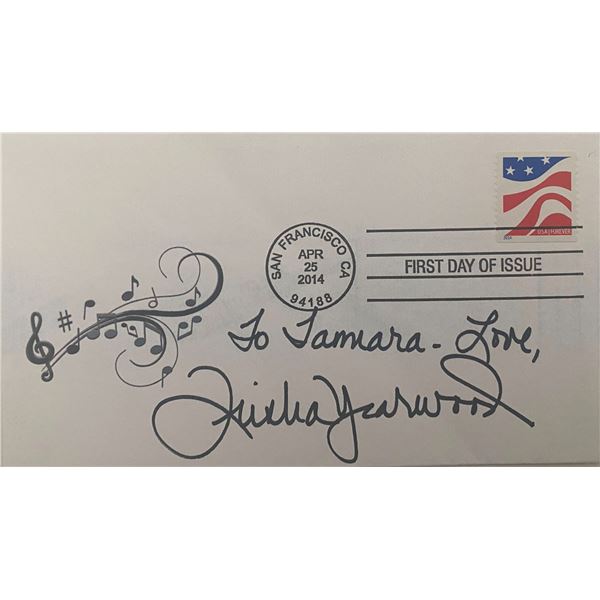 USA | FOREVER
2014
SAN FRANCISCO CA
APR
25
2014
94188
FIRST DAY OF ISSUE
To Tamara - Love,
Trisha Yearwood